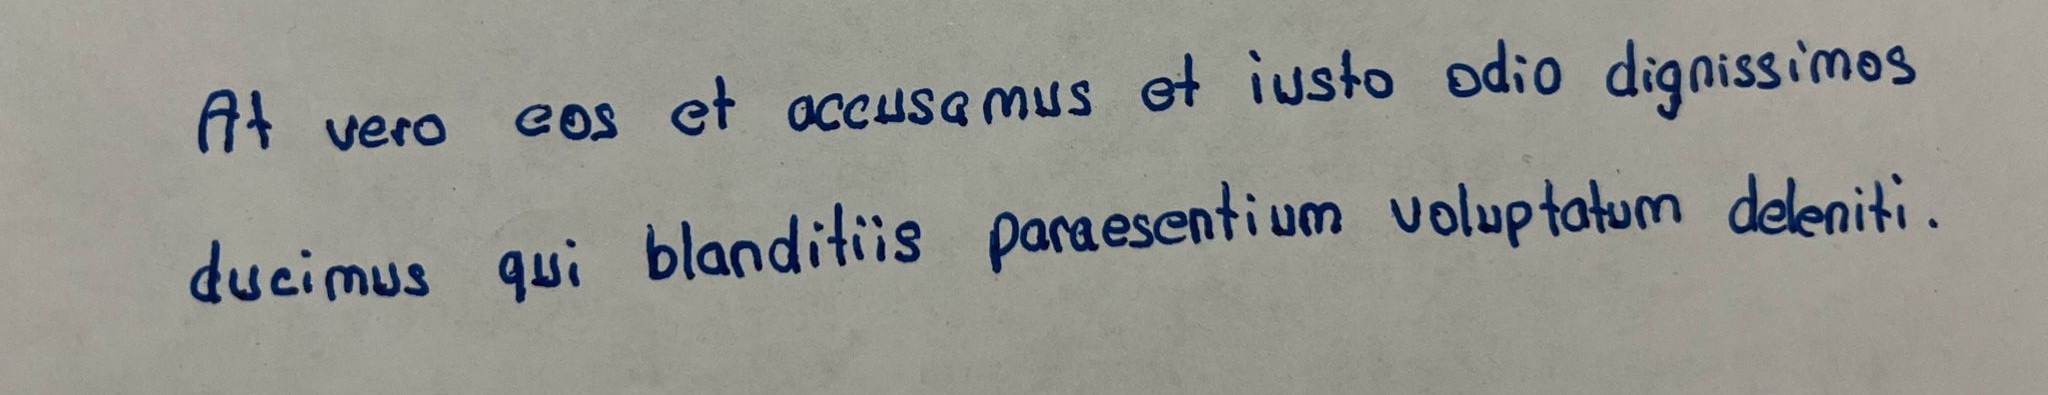 At vero eos et accusamus et iusto odio dignissimos
ducimus qui blanditiis paraesentium voluptatum deleniti.